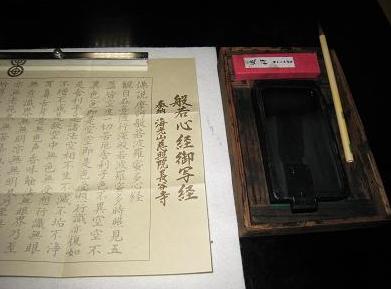 般若心経御写経
奉納 海光山慈照院長谷寺
佛説摩訶般若波羅蜜多心経
観自在菩薩行深般若波羅蜜多時照見五
蘊皆空度一切苦厄舎利子色不異空空不
異色色即是空空即是色受想行識亦復如
是舎利子是諸法空相不生不滅不垢不浄
不増不減是故空中無色無受想行識無眼
耳鼻舌身意無色声香味触法無眼界乃至